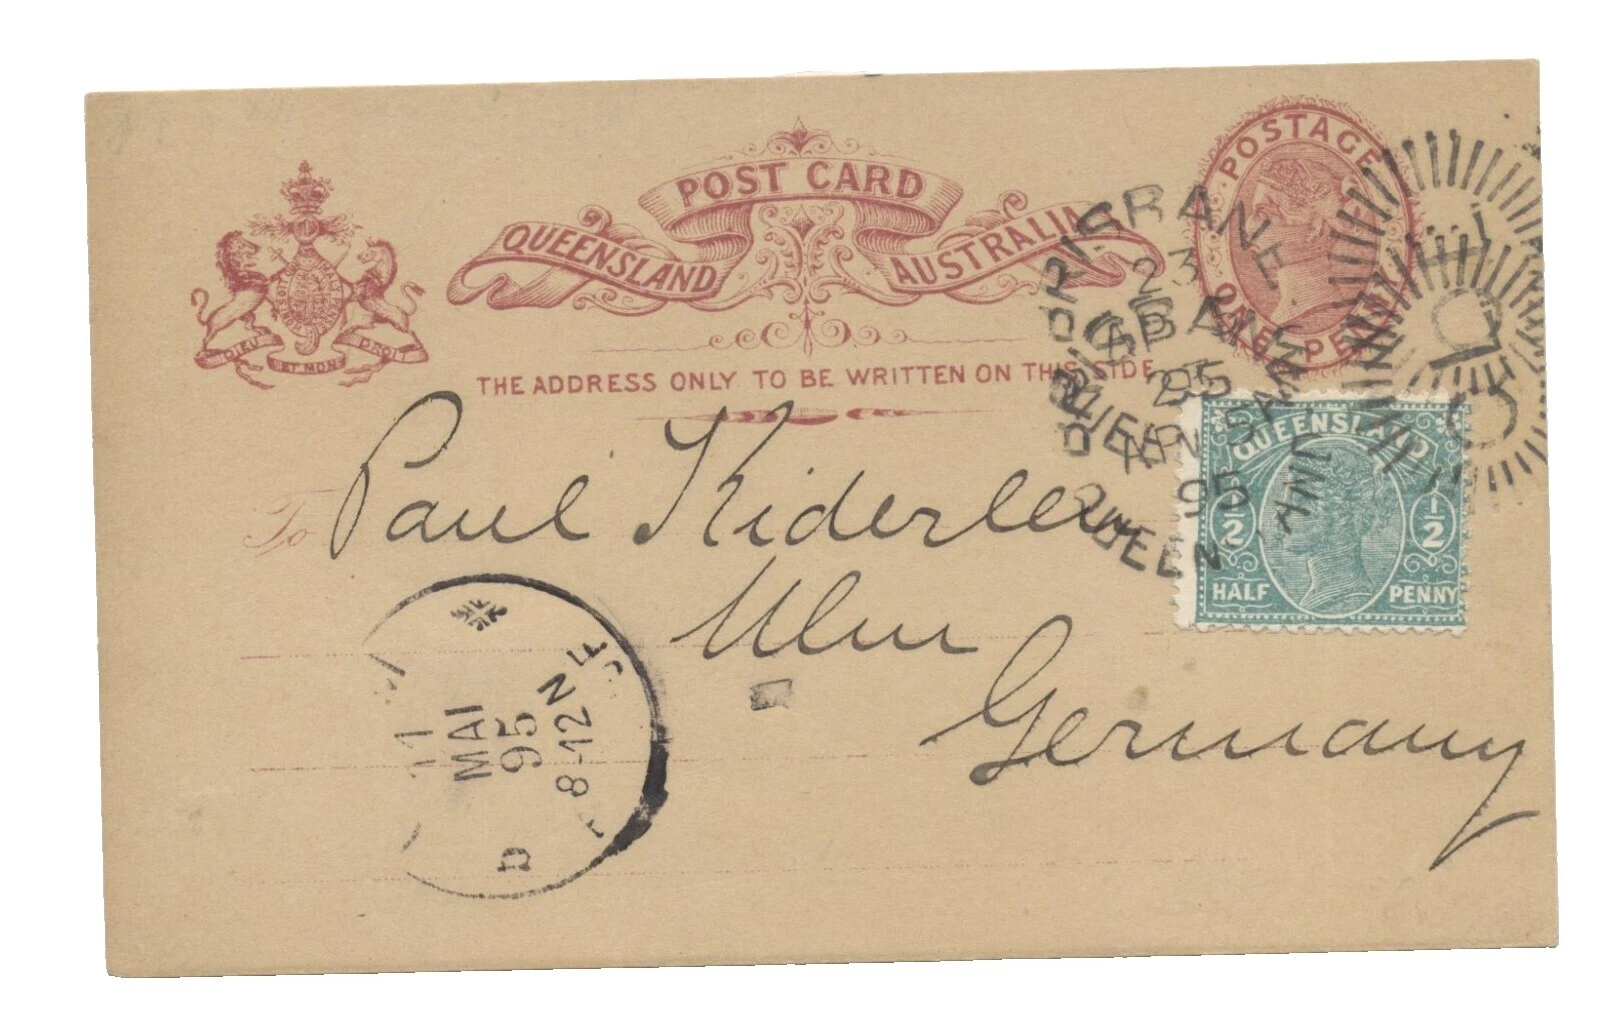 POST CARD
QUEENSLAND AUSTRALIA
POSTAGE
ONE PENNY
DIEU ET MON DROIT
THE ADDRESS ONLY TO BE WRITTEN ON THIS SIDE
To Paul Kiderlen
Ulm
Germany
QUEENSLAND
1/2 1/2
HALF PENNY
BRISBANE
23
AP
95
QUEENSLAND
11
MAI
95
8-12 N